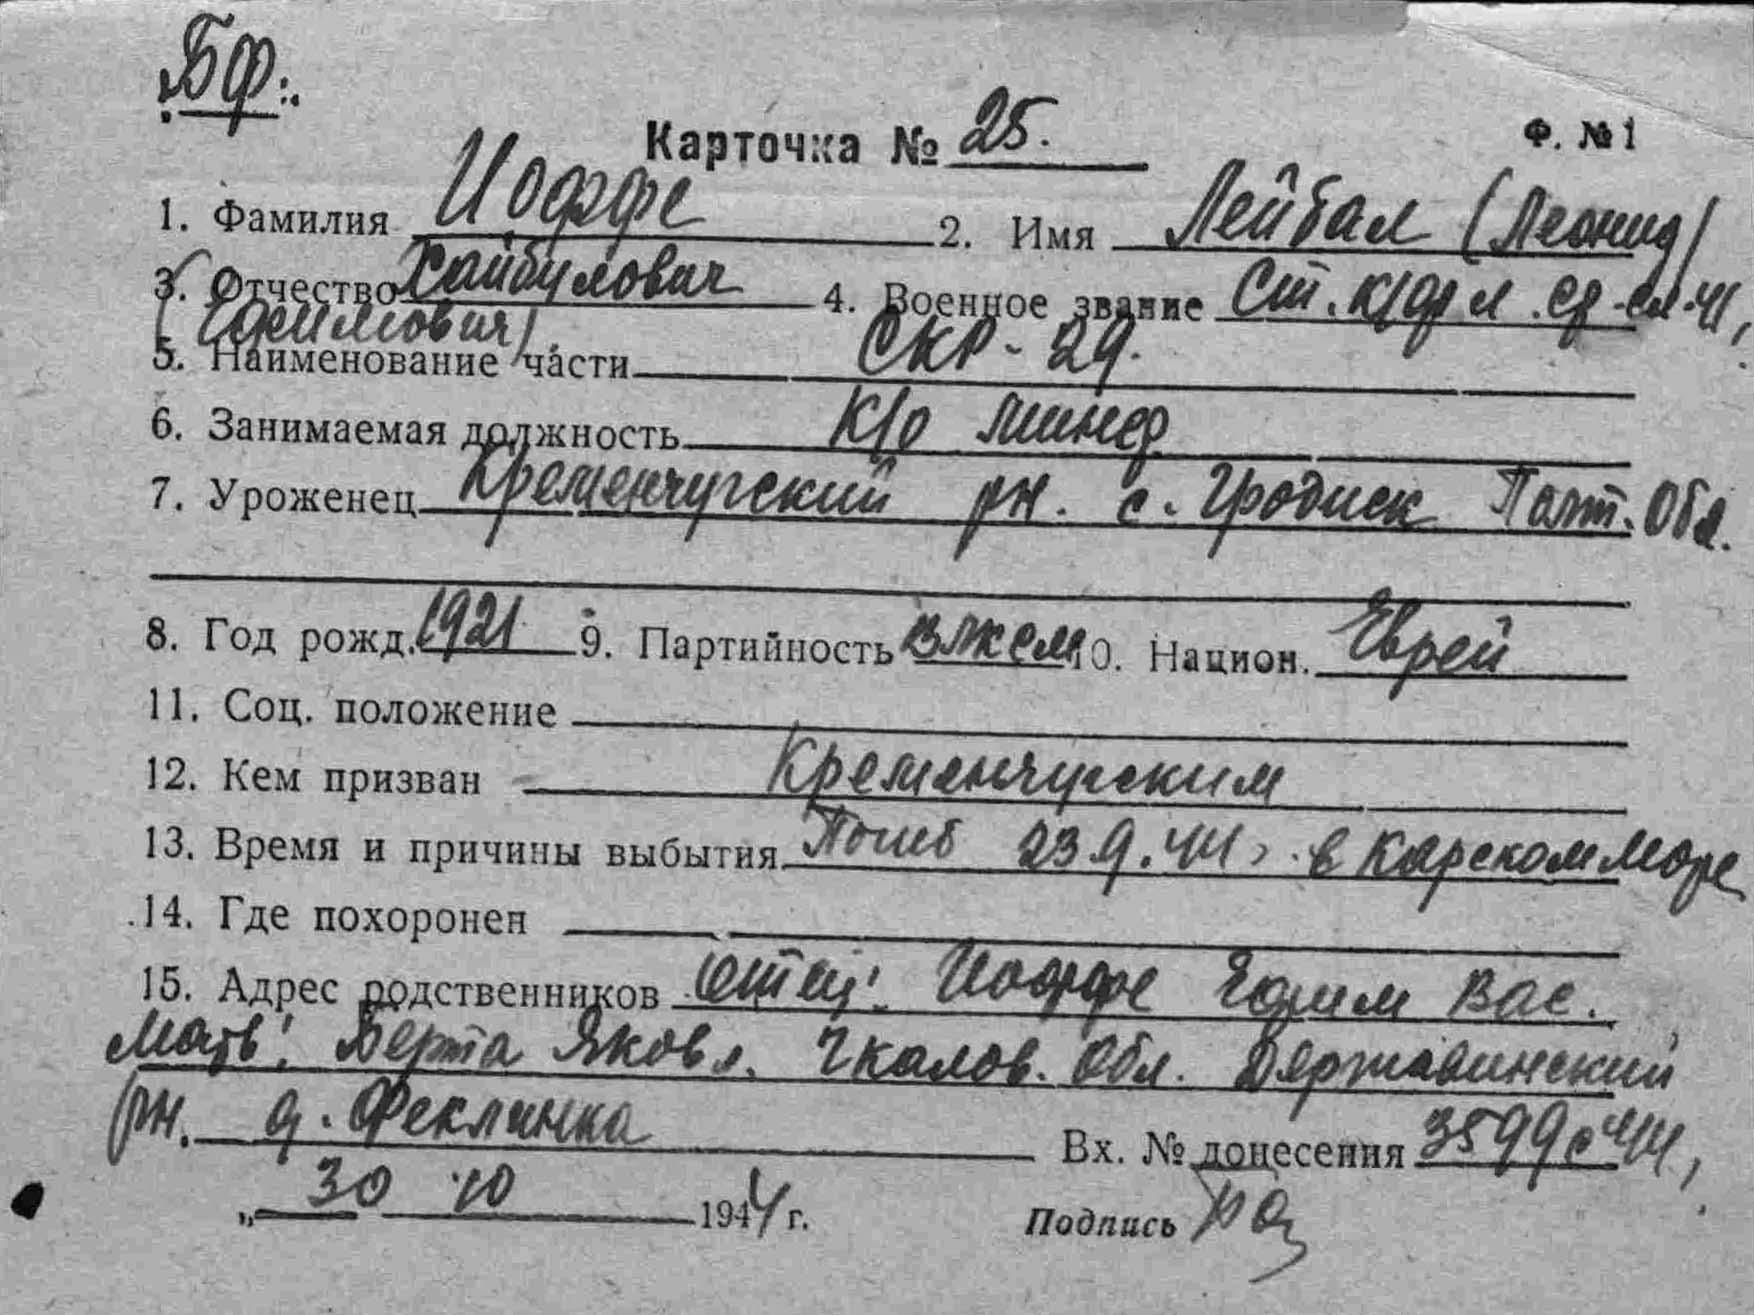 БФ.
Карточка № 25. Ф. № 1
1. Фамилия Иоффе 2. Имя Лейбал (Леонид)
3. Отчество Хайбулович 4. Военное звание Ст. к/фл. сл. 41,
(Ефимович)
5. Наименование части СКР-29.
6. Занимаемая должность К/о минер
7. Уроженец Кременчугский рн. с. Гродиск Полт. Обл.
8. Год рожд. 1921 9. Партийность ВЛКСМ 10. Национ. Еврей
11. Соц. положение
12. Кем призван Кременчугским
13. Время и причины выбытия Погиб 23.9.44 г. в Карском море
14. Где похоронен
15. Адрес родственников Отец: Иоффе Ефим Вас.
Мать: Берта Яковл. Чкалов. Обл. Державинский
рн. д. Феклинка Вх. № донесения 3599с 44,
„ 30 10 1944 г. Подпись